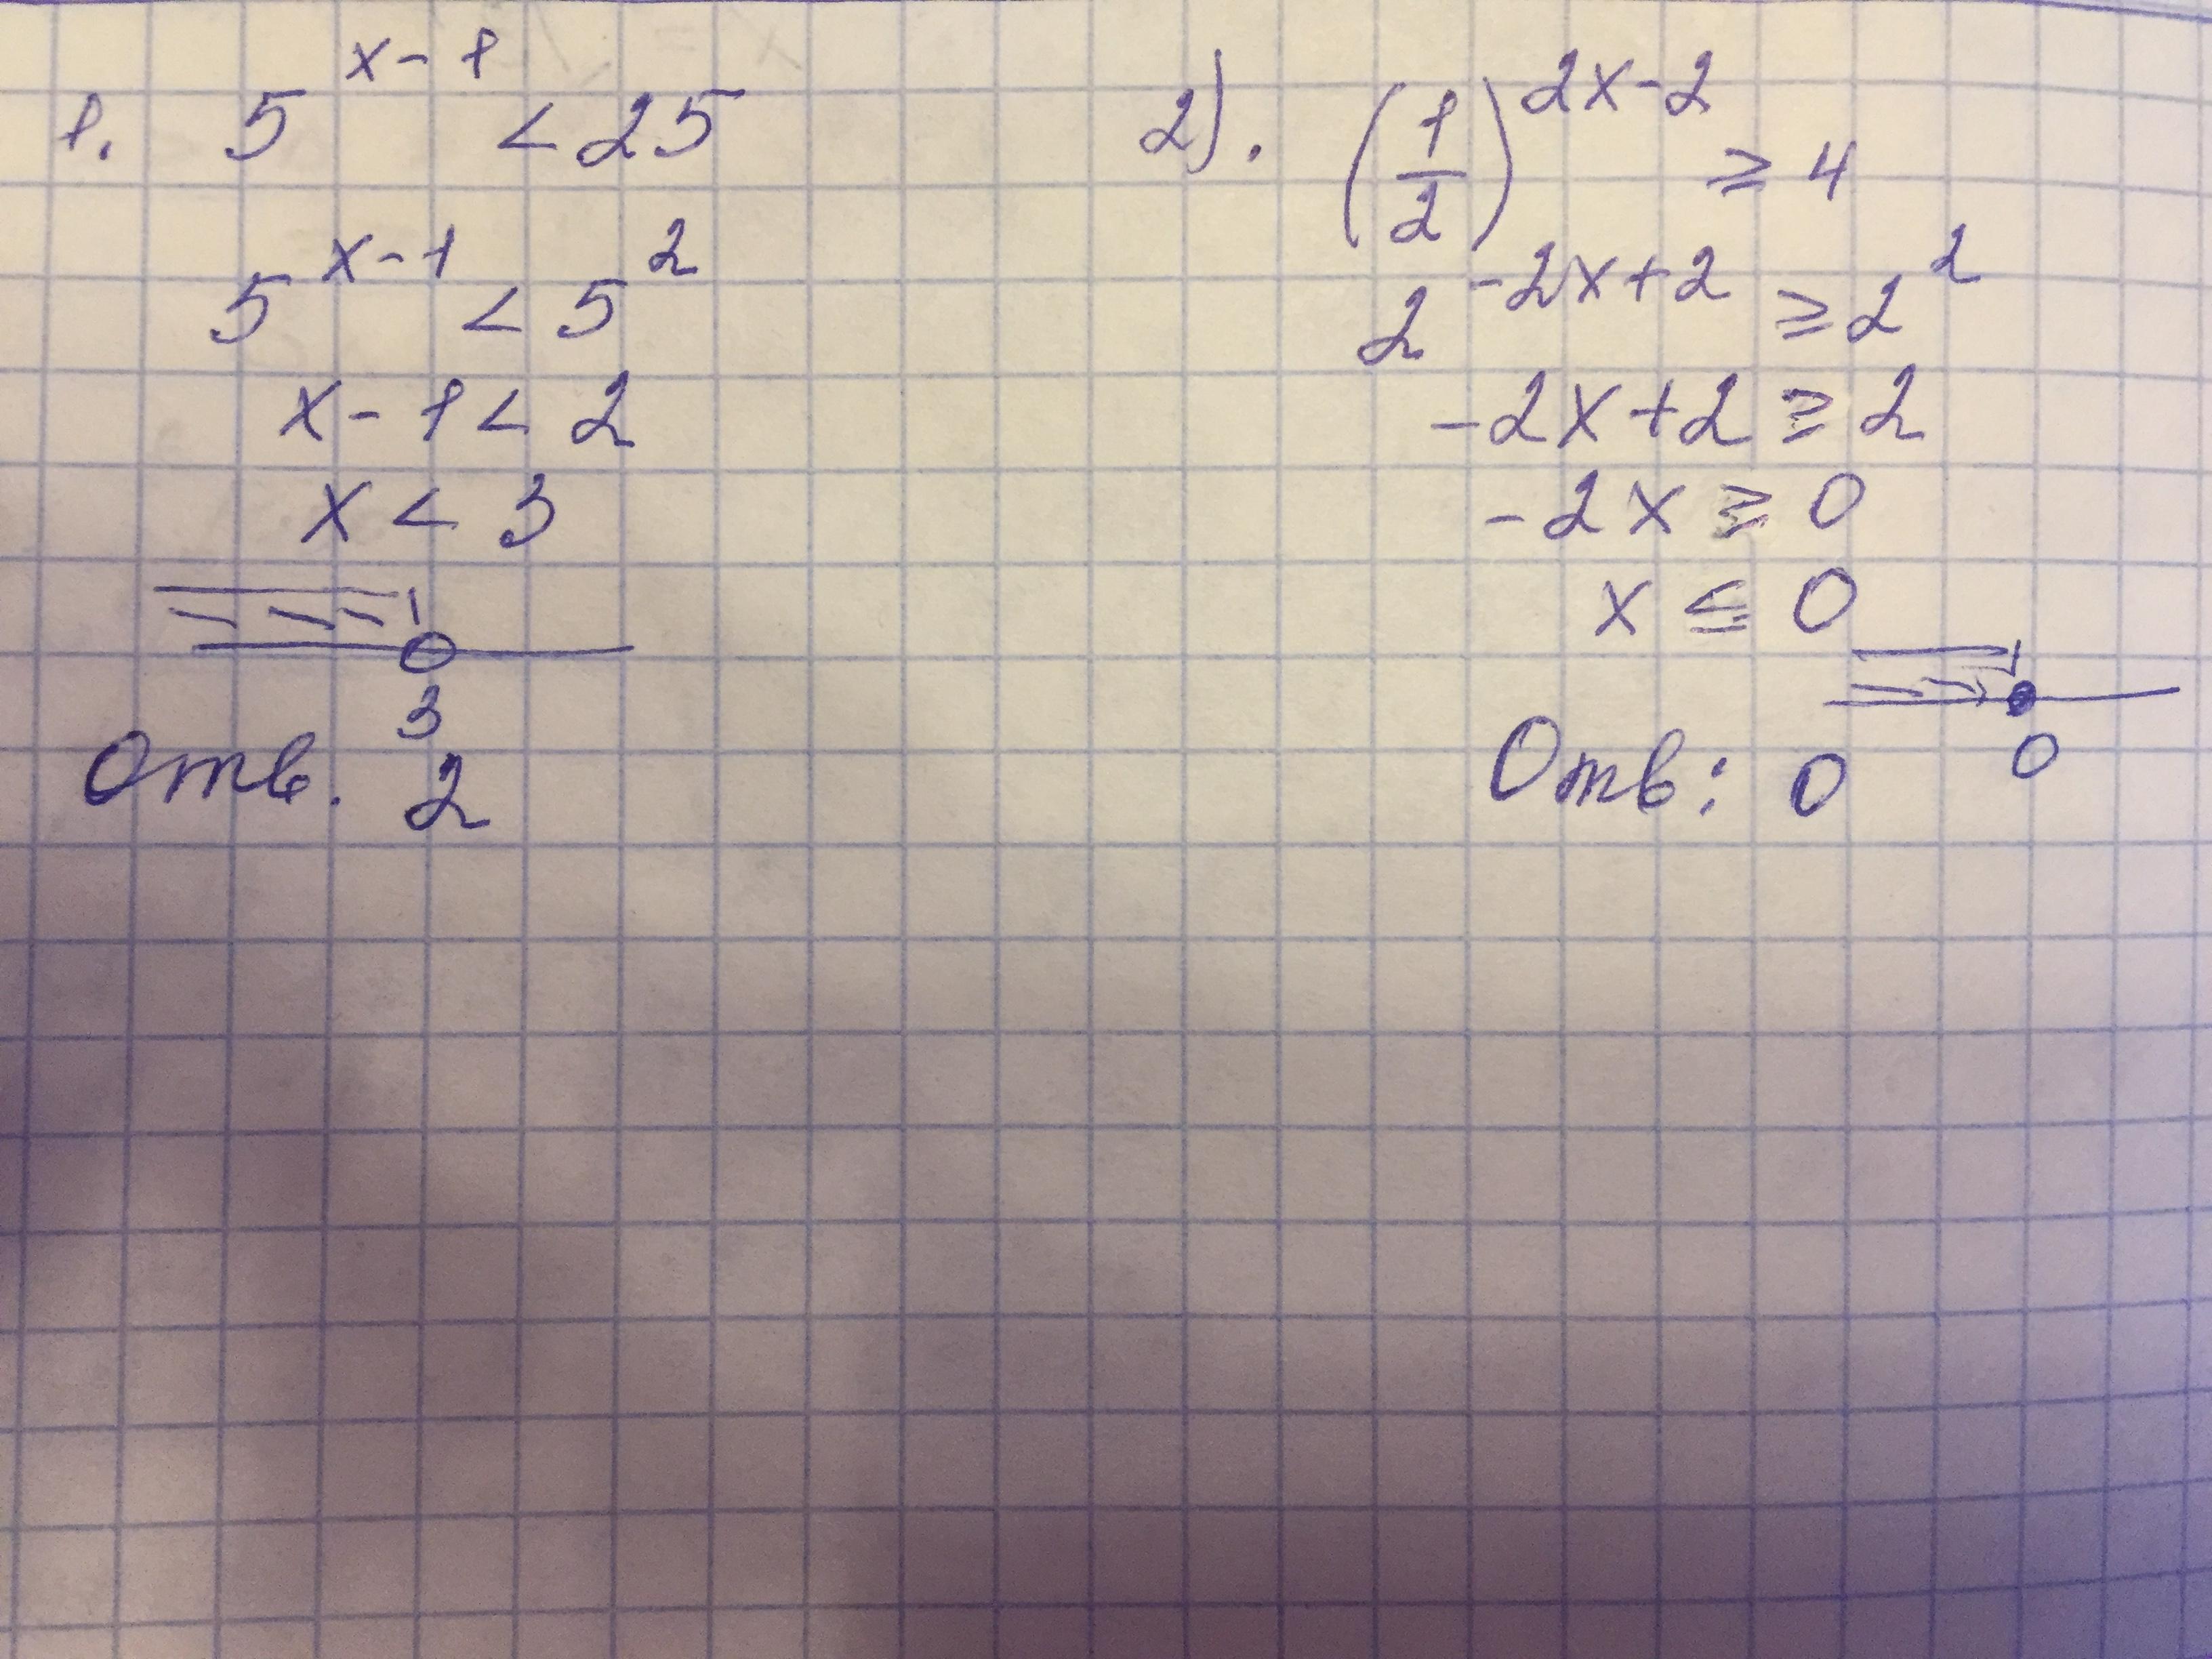 1. 5^{x-1} < 25
5^{x-1} < 5^2
x - 1 < 2
x < 3
3
Отв. 2
2). (1/2)^{2x-2} ≥ 4
2^{-2x+2} ≥ 2^2
-2x+2 ≥ 2
-2x ≥ 0
x ≤ 0
0
Отв: 0